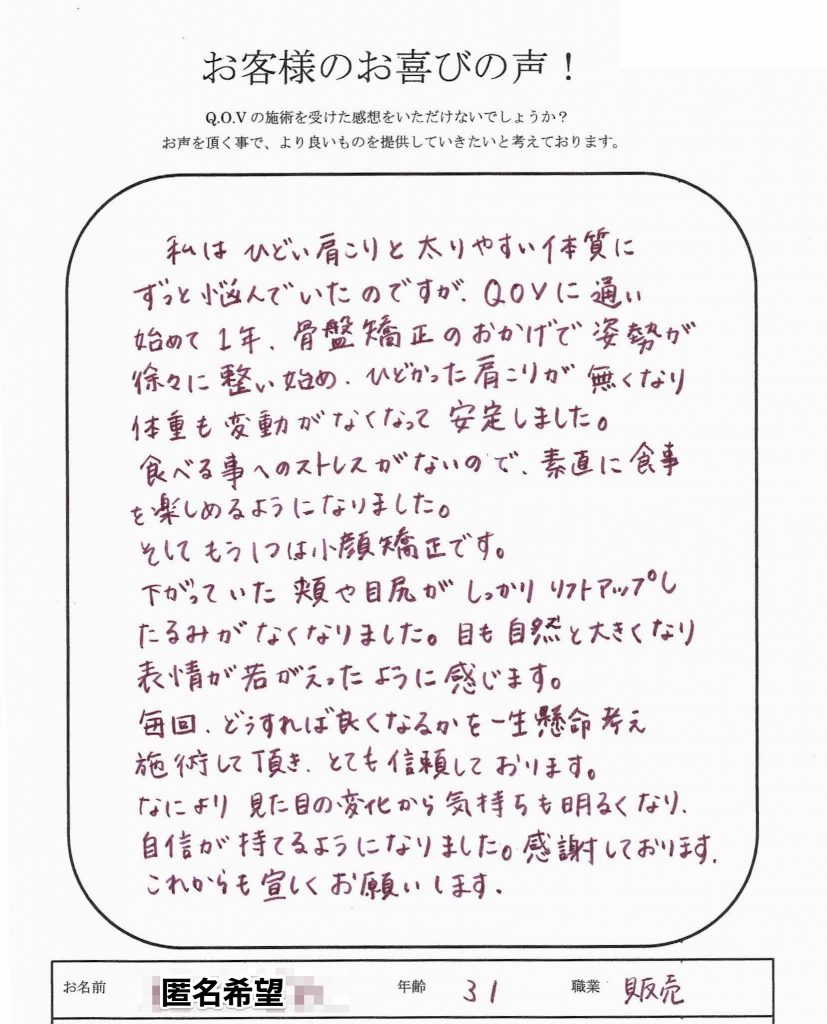 お客様のお喜びの声！
Q.O.Vの施術を受けた感想をいただけないでしょうか？
お声を頂く事で、より良いものを提供していきたいと考えております。
私はひどい肩こりと太りやすい体質に
ずっと悩んでいたのですが、QOVに通い
始めて1年、骨盤矯正のおかげで姿勢が
徐々に整い始め、ひどかった肩こりが無くなり
体重も変動がなくなって安定しました。
食べる事へのストレスがないので、素直に食事
を楽しめるようになりました。
そしてもう1つは小顔矯正です。
下がっていた頬や目尻がしっかりリフトアップし
たるみがなくなりました。目も自然と大きくなり
表情が若がえったように感じます。
毎回、どうすれば良くなるかを一生懸命考え
施術して頂き、とても信頼しております。
なにより見た目の変化から気持ちも明るくなり、
自信が持てるようになりました。感謝しております。
これからも宜しくお願いします。
お名前 匿名希望 年齢 31 職業 販売